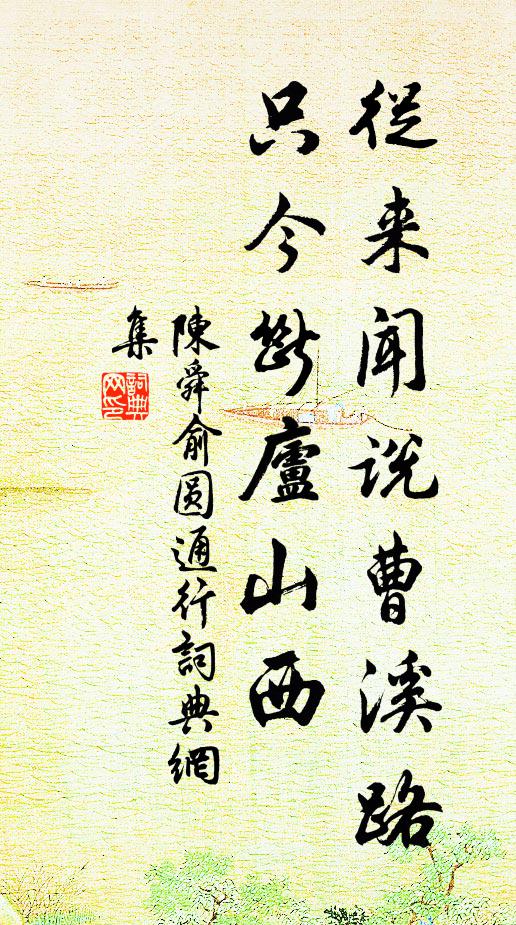 從来闻说曹溪路
只今廬山西
陳舜俞圆通行詞典網
集
詞典
网印